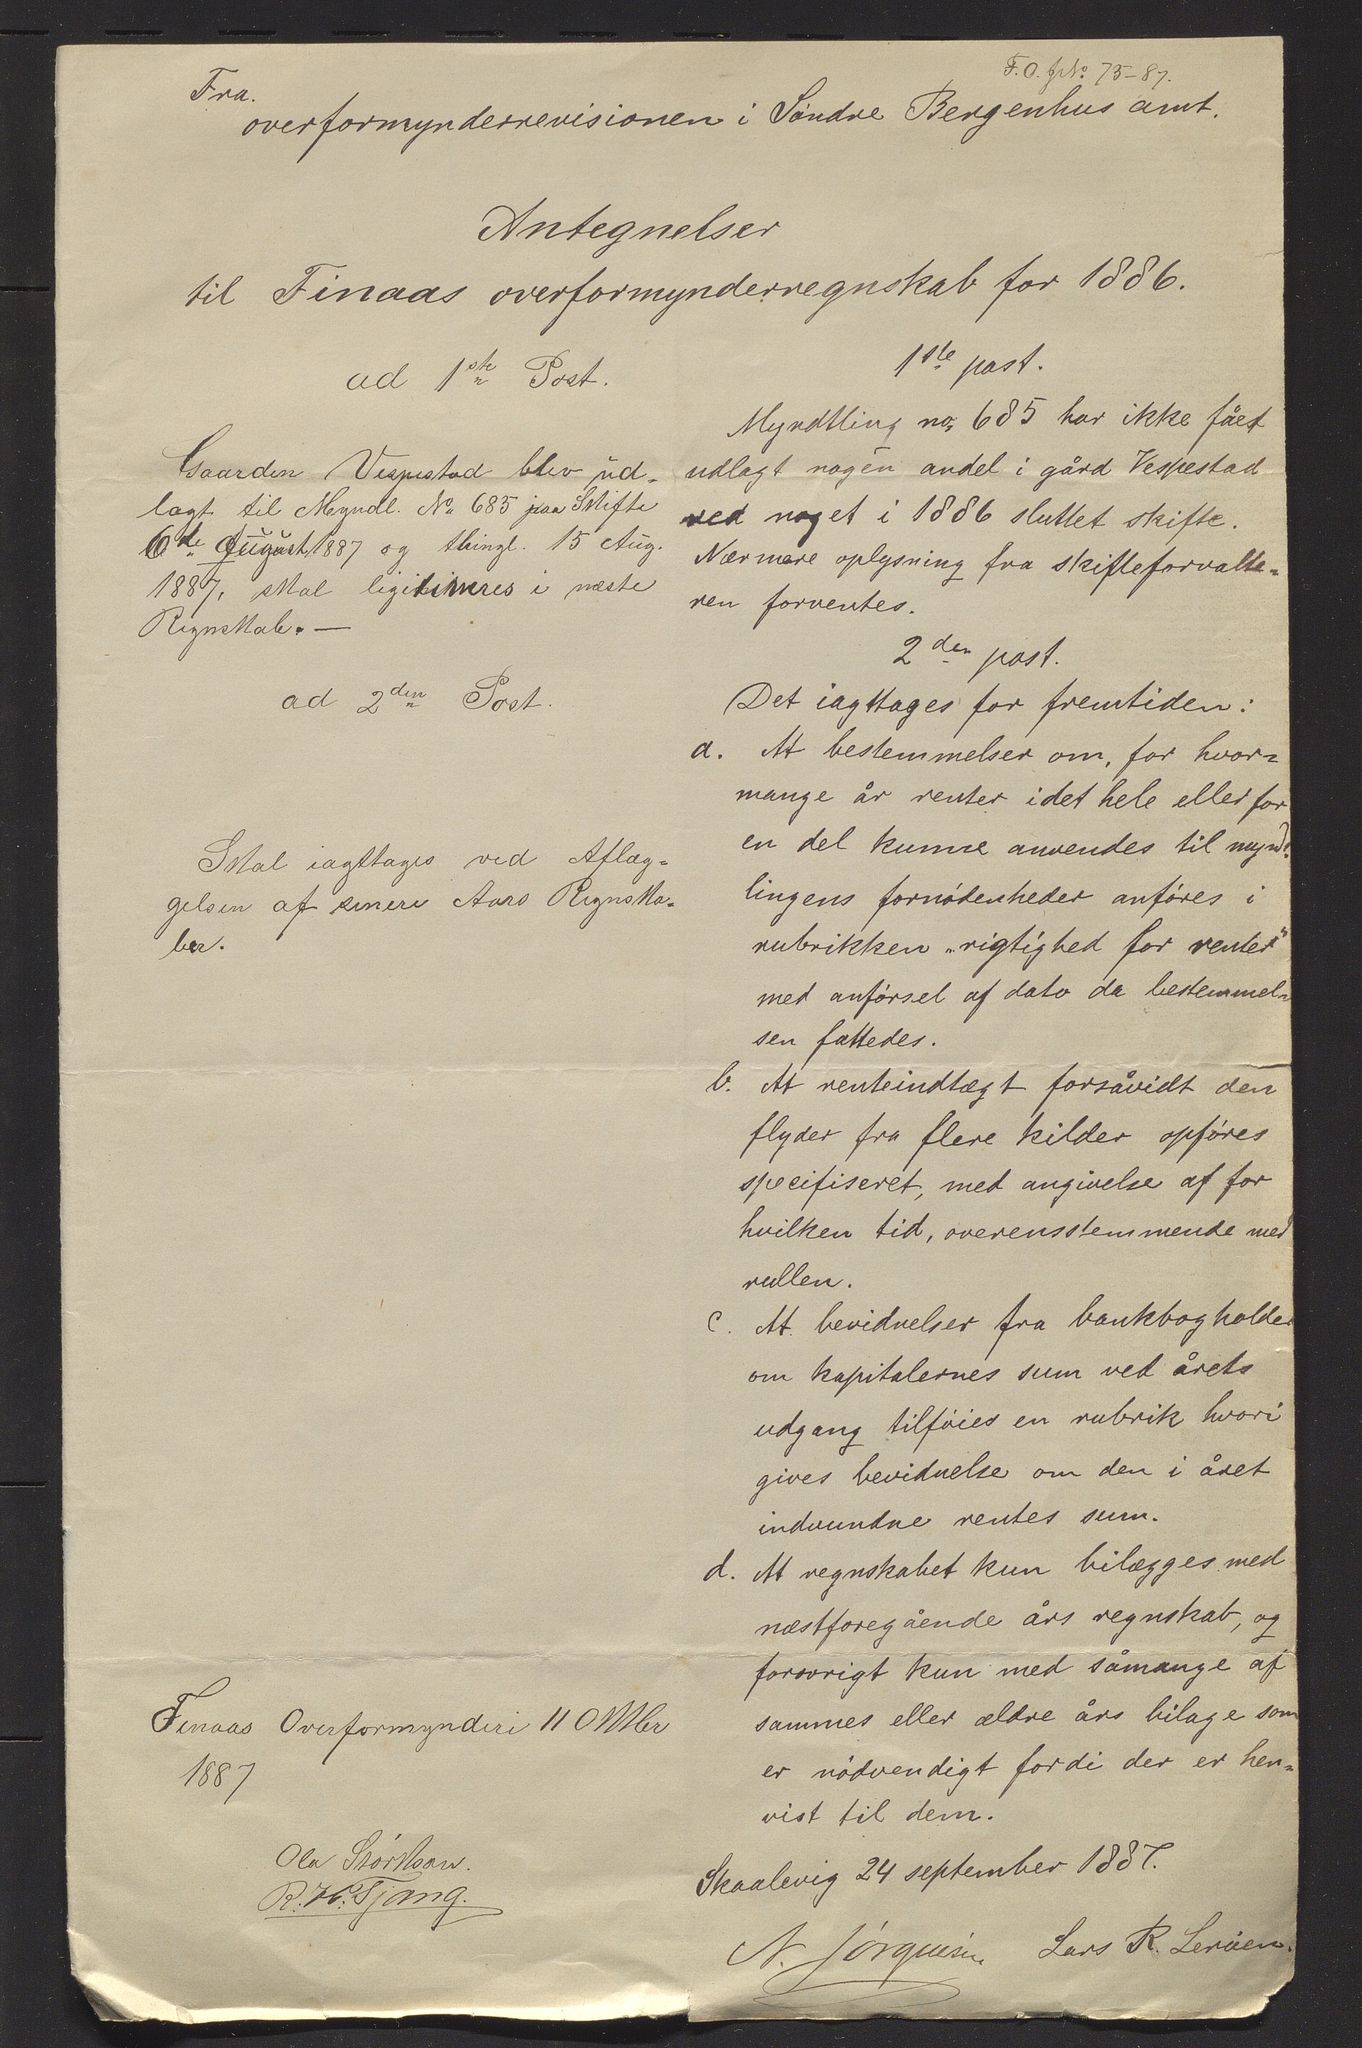 F. O. jNo 75-87.
Fra
overformynderrevisionen i Söndre Bergenhus amt.
Antegnelser
til Finaas overformynderregnskab for 1886.
ad 1ste Post.
Gaarden Vespestad blev ud-
lagt til Myndl. No 685 paa Skifte
6de August 1887 og thingl. 15 Aug.
1887, skal ligitimeres i næste
Regnskab. —
ad 2den Post.
Skal iagttages ved Aflæg-
gelsen af senere Aars Regnska-
ber.
Finaas Overformynderi 11 Oktbr
1887
Ola Størkson.
R. H. Tjong.
1ste post.
Myndtling no 685 har ikke fået
udlagt nogen andel i gård Vespestad
ved noget i 1886 sluttet skifte.
Nærmere oplysning fra skifteforvalte-
ren forventes.
2den post.
Det iagttages for fremtiden:
a. At bestemmelser om, for hvor-
mange år renter i det hele eller for
en del kunne anvendes til mynd-
lingens fornödenheder anföres i
rubrikken "rigtighed for renter"
med anförsel af dato da bestemmel-
sen fattedes.
b. At renteindtægt forsåvidt den
flyder fra flere kilder opföres
specifiseret, med angivelse af for
hvilken tid, overensstemmende med
rullen.
c. At bevidnelser fra bankbogholder
om kapitalernes sum ved årets
udgang tilföies en rubrik hvori
gives bevidnelse om den i året
indvundne rentes sum.
d. At regnskabet kun bilægges med
næstforegående års regnskab, og
forövrigt kun med såmange af
sammes eller ældre års bilage som
er nödvendigt fordi der er hen-
vist til dem.
Skaalevig 24 september 1887.
N. Jörgensen Lars R. Leröen.